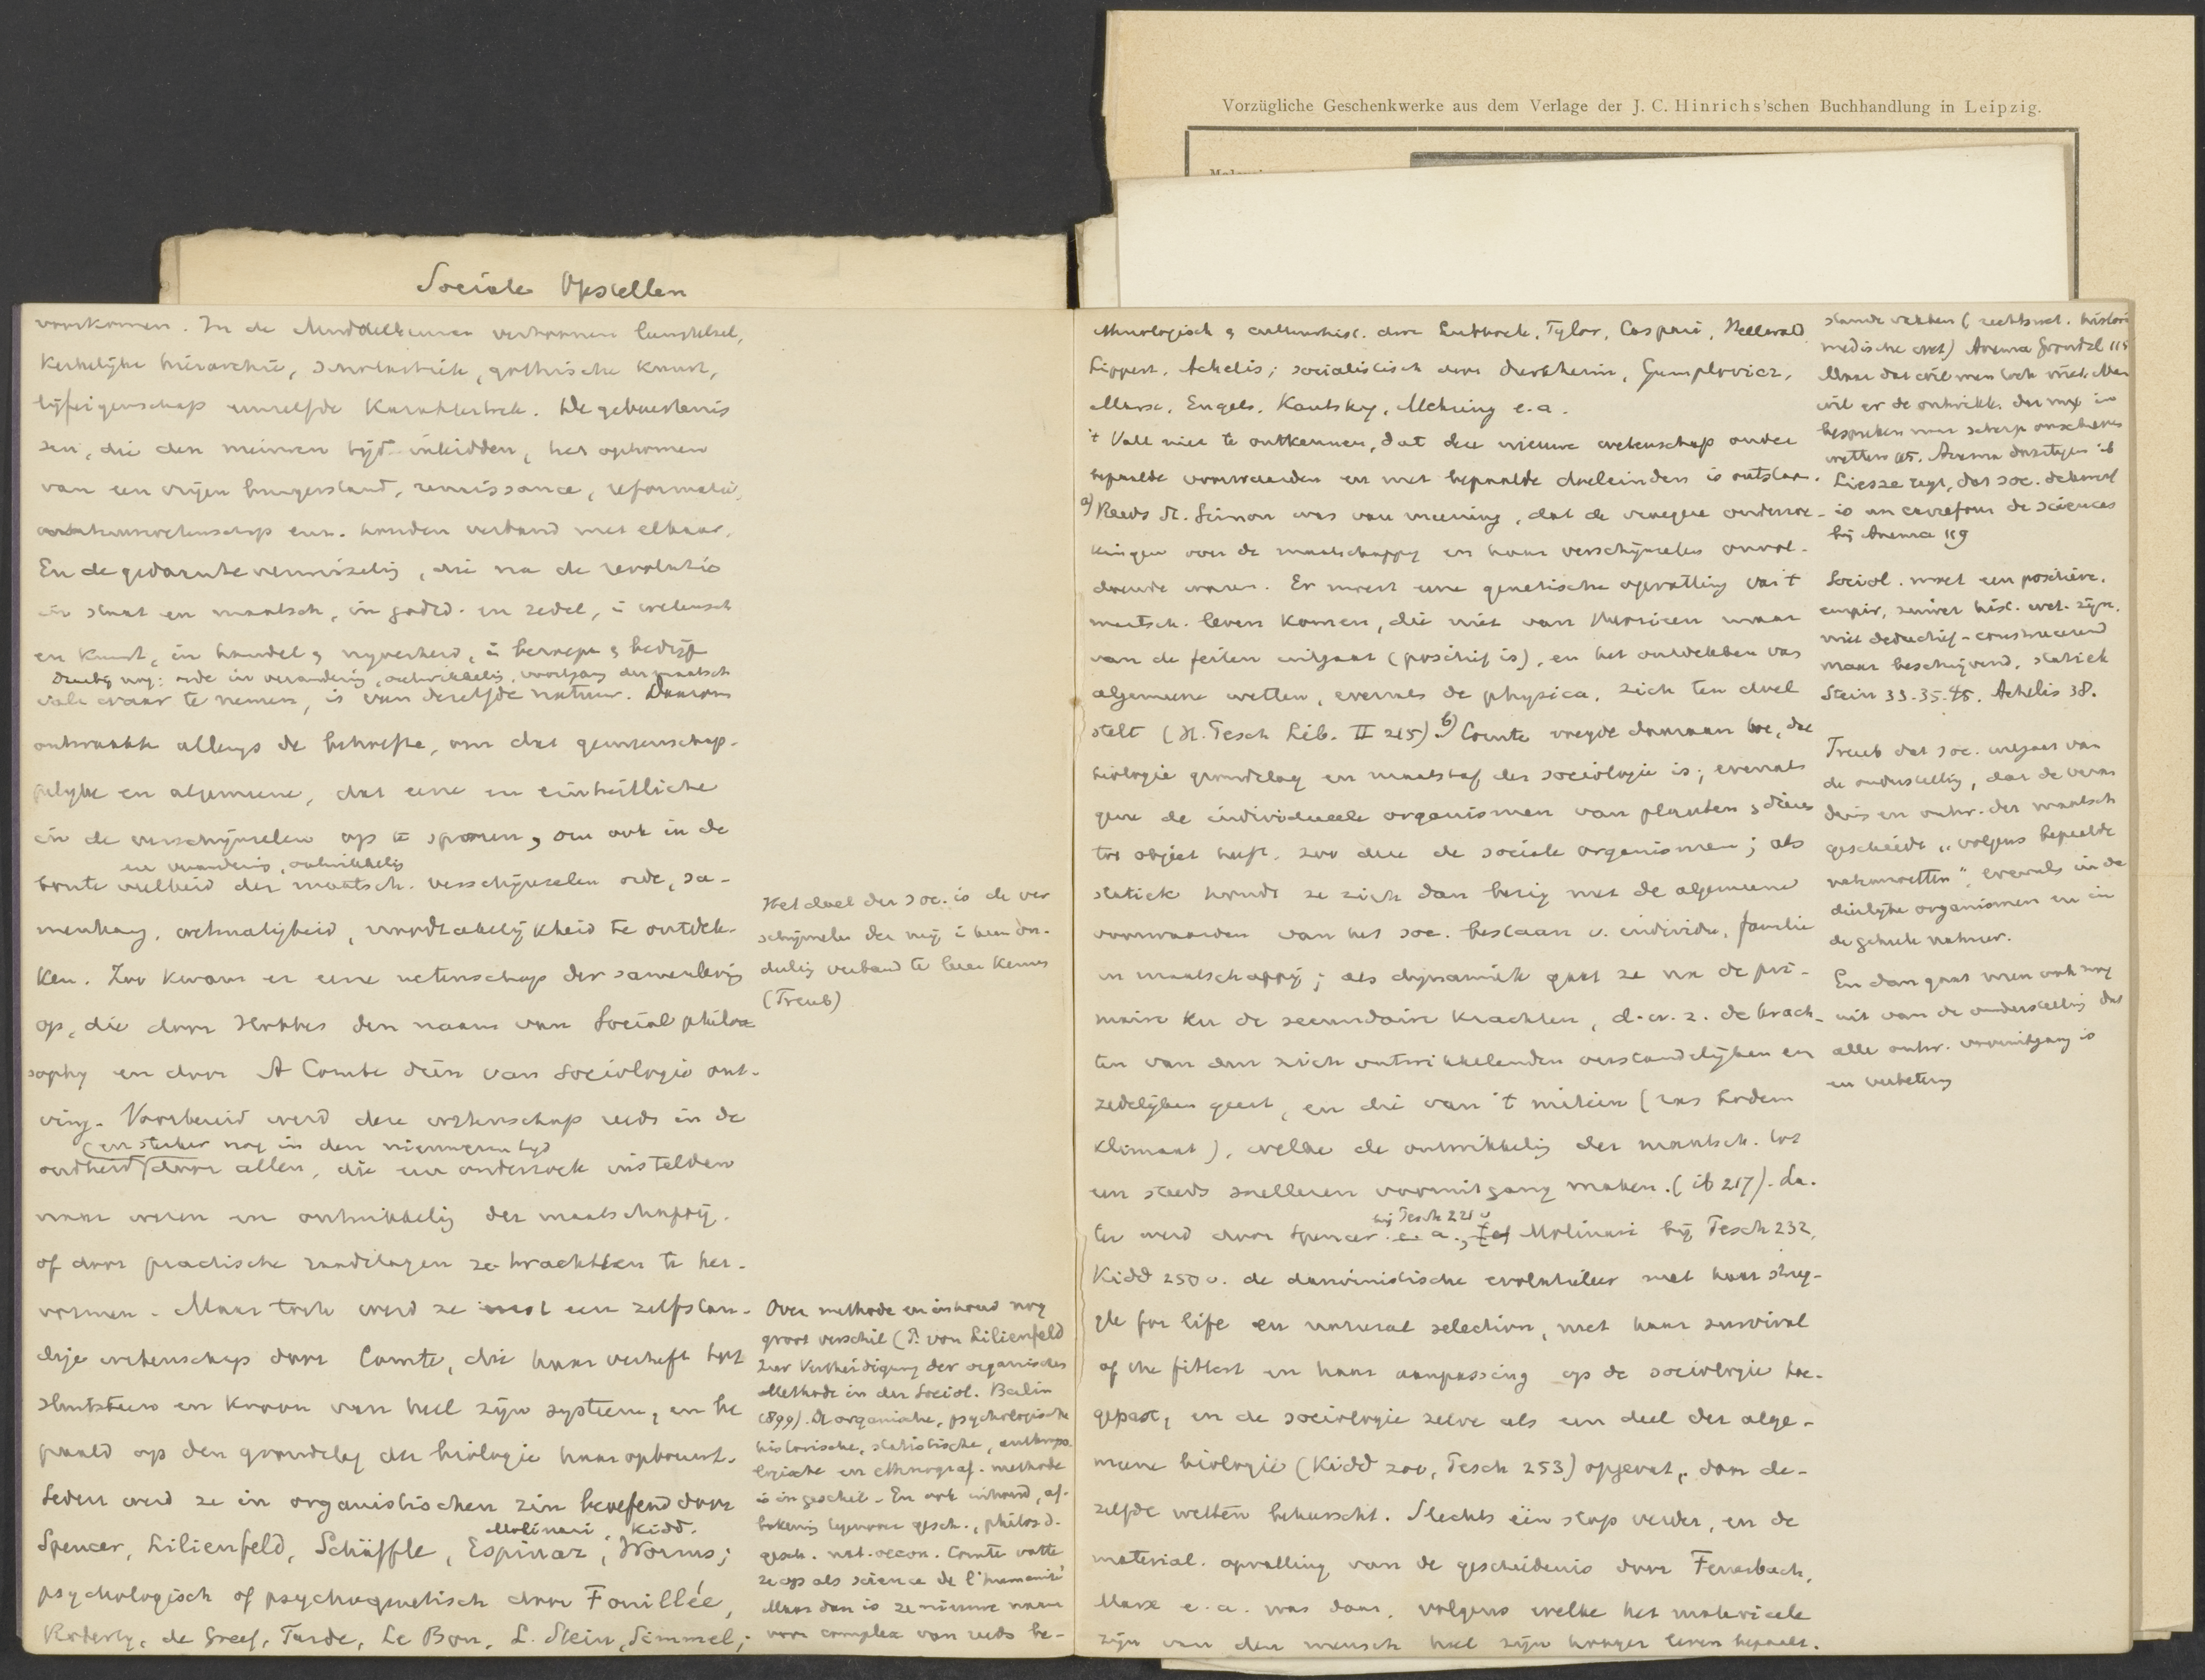 Vorzügliche Geschenkwerke aus dem Verlage der J. C. Hinrichs'schen Buchhandlung in Leipzig.
Sociale Opstellen
voorkomen. In de Middeleeuwen vertoonen leenstelsel,
Kerkelijke hiërarchie, scholastiek, gothische kunst,
lijfeigenschap eenzelfde Karaktertrek. De gebeurtenis
sen, die den nieuwen tijd inleidden, het opkomen
van een vrijen burgerstand, renaissance, reformatie,
natuurwetenschap enz. houden verband met elkaar.
En de gedaanteverwisseling, die na de revolutie
in staat en maatsch., in godsd. en zedel., in wetensch
en kunst, in handel & nyverheid, in beroep & bedrijf
daarbij nog: orde in verandering, ontwikkeling, voortgang der maatsch
valt waar te nemen, is van dezelfde natuur. Daarom
ontwaakte allengs de behoefte, om dat gemeenschap-
pelijke en algemeene, dat eene en einheitliche
in de verschijnselen op te sporen, om ook in de
en verandering, ontwikkeling
bonte veelheid der maatsch. verschijnselen orde, sa-
menhang, wetmatigheid, noodzakelijkheid te ontdek-
ken. Zoo kwam er eene wetenschap der samenleving
op, die door Hobbes den naam van Social philo
sophy en door A Comte dien van Sociologie ont-
ving. Voorbereid werd deze wetenschap reeds in de
(en sterker nog in den nieuweren tyd
oudheid) door allen, die een onderzoek instelden
naar wezen en ontwikkeling der maatschappij.
of door practische raadslagen ze trachtten te her-
vormen. Maar toch werd ze eerst een zelfstan-
dige wetenschap door Comte, die haar verheft tot
sluitsteen en kroon van heel zijn systeem, en be
paald op den grondslag der biologie haar opbouwt.
Sedert werd ze in organistischen zin beoefend door
Molinari, Kidd.
Spencer, Lilienfeld, Schäffle, Espinaz, Worms;
psychologisch of psychogenetisch door Fouillée,
Roberty, de Greef, Tarde, Le Bon, L. Stein, Simmel;
Het doel der soc. is de ver
schijnselen der mij in hun on-
derling verband te leeren kennen
(Treub)
Over methode en inhoud nog
groot verschil (P. von Lilienfeld
Zur Vertheidigung der organischen
Methode in der Sociol. Berlin
1899). De organische, psychologische
historische, statistische, anthropo-
logische en ethnograf. methode
is in geschil. En ook inhoud, af-
bakening tegenover gesch., philos. d.
gesch. nat. oecon. Comte vatte
ze op als science de l'humanité
Maar dan is ze nieuwe naam
voor complex van reeds be-
ethnologisch & cultuurhist. door Lubbock, Tylor, Caspari, Hellwald
Lippert, Achelis; socialistisch door Durkheim, Gumplovicz,
Marx, Engels, Kautsky, Mehring e. a.
't Valt niet te ontkennen, dat deze nieuwe wetenschap onder
bepaalde voorwaarden en met bepaalde doeleinden is ontstaan.
a) Reeds St. Simon was van meening, dat de vroegere onderzoe-
kingen over de maatschappy en haar verschijnselen onvol-
doende waren. Er moest eene genetische opvatting van 't
maatsch. leven komen, die niet van theorieen maar
van de feiten uitgaat (positief is), en het ontdekken van
algemeene wetten, evenals de physica, zich ten doel
stelt (H. Pesch Lib. II 215). b) Comte voegde daaraan toe, dat
biologie grondslag en maatstaf der sociologie is; evenals
gene de individueele organismen van planten & dieren
tot object heeft, zoo deze de sociale organismen; als
statiek houdt ze zich dan bezig met de algemeene
voorwaarden van het soc. bestaan v. individu, familie
en maatschappij; als dynamiek gaat ze na de pri-
maire en de secundaire krachten, d. w. z. de krach-
ten van den zich ontwikkelenden verstandelijken en
zedelijken geest, en die van 't milieu (ras bodem
klimaat), welke de ontwikkeling der maatsch. tot
een steeds snelleren vooruitgang maken. (ib 217). La-
bij Pesch 221 v
ter werd door Spencer e. a., Molinari bij Pesch 232,
Kidd 250 v. de darwinistische evolutieleer met haar strug-
gle for life en natural selection, met haar survival
of the fittest en haar aanpassing op de sociologie toe-
gepast, en de sociologie zelve als een deel der alge-
meene biologie (Kidd zoo, Pesch 253) opgevat, door de-
zelfde wetten beheerscht. Slechts één stap verder, en de
material. opvatting van de geschiedenis door Feuerbach,
Marx e. a. was daar, volgens welke het materieele
zijn van den mensch heel zijn hooger leven bepaalt.
staande vakken (rechtswet. histori
medische wet) Anema Grondsl 115
Maar dat wil men toch niet. Men
wil er de ontwikk. der mij in
bespreken naar scherp omschreven
wetten 115. Anema daartegen ib
Liesse zegt, dat soc. dikwerf
is un carrefour de sciences
bij Anema 119
Sociol. moet een positieve,
empir, zuiver hist. wet. zijn,
niet deductief-construeerend
maar beschrijvend, statiek
Stein 33. 35. 45. Achelis 38.
Treub dat soc. uitgaat van
de onderstelling, dat de veran
dering en ontw. der maatsch
geschiedt „volgens bepaalde
natuurwetten", evenals in de
dierlijke organismen en in
de geheele natuur.
En dan gaat men ook nog
uit van de onderstelling dat
alle ontw. vooruitgang is
en verbetering